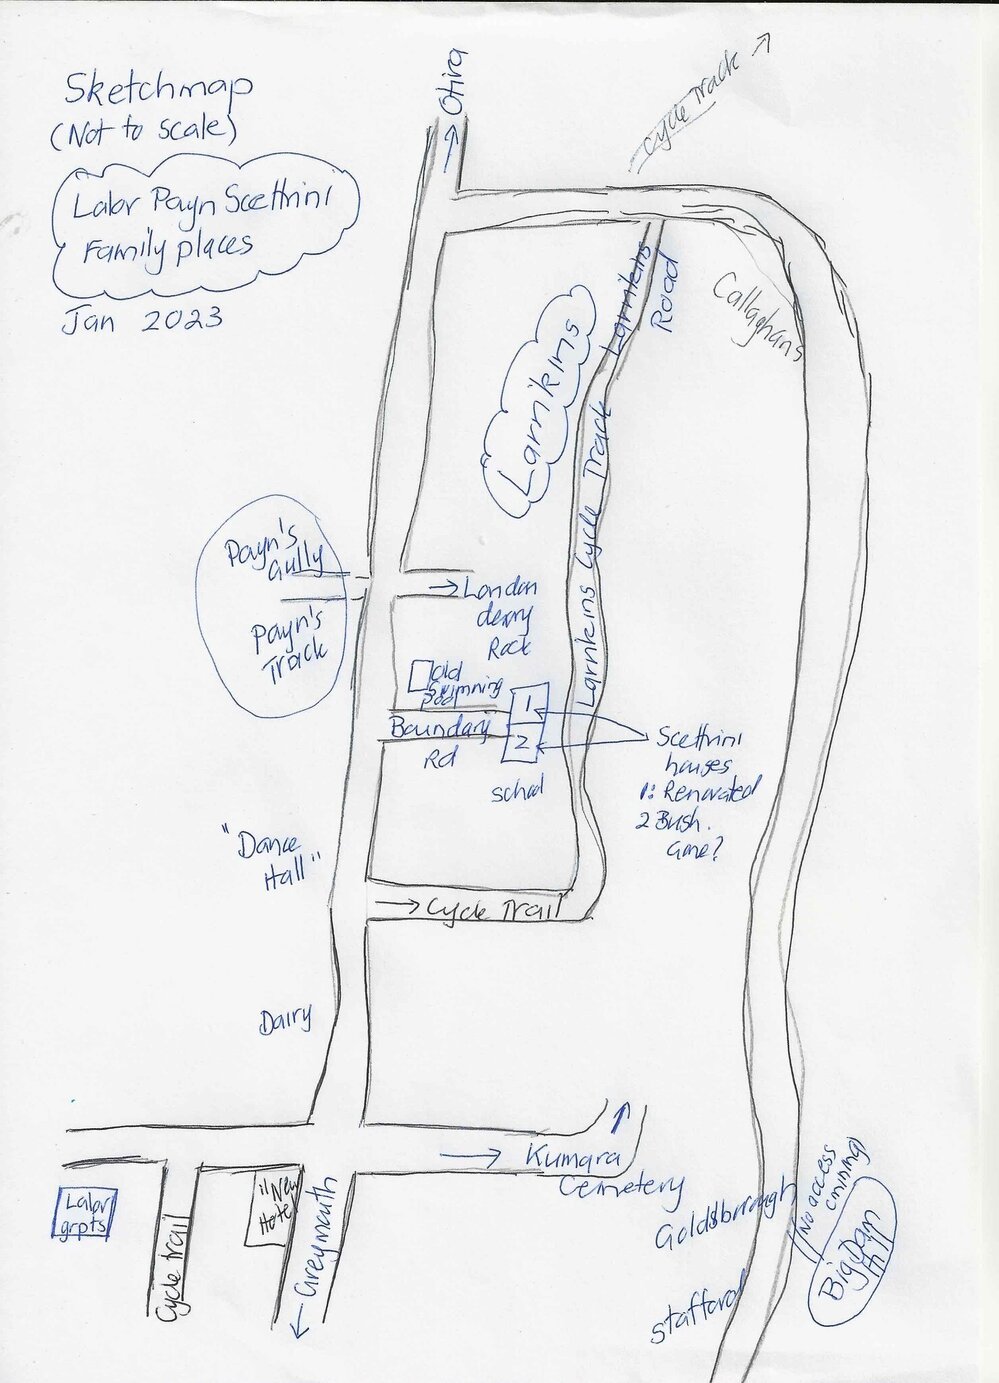 Sketchmap
(Not to scale)
Lalor Payn Scettrini
Family places
Jan 2023
→ Otira
Cycle Track →
Larnkins
Road
Callaghans
"Larrikins
Larnkins Cycle Track
Payn's
Gully
Payn's
Track
→ London
derry
Rock
Old
Swimming
Pool
Boundary
Rd
1
2
school
Scettrini
houses
1: Renovated
2 Bush.
Gone?
"Dance
Hall"
→ Cycle Trail
Dairy
→ Kumara
Cemetery
Lalor
grpts
Cycle trail
"New
Hotel
← Greymouth
Goldsborough
Stafford
(No access
mining)
Big Dam